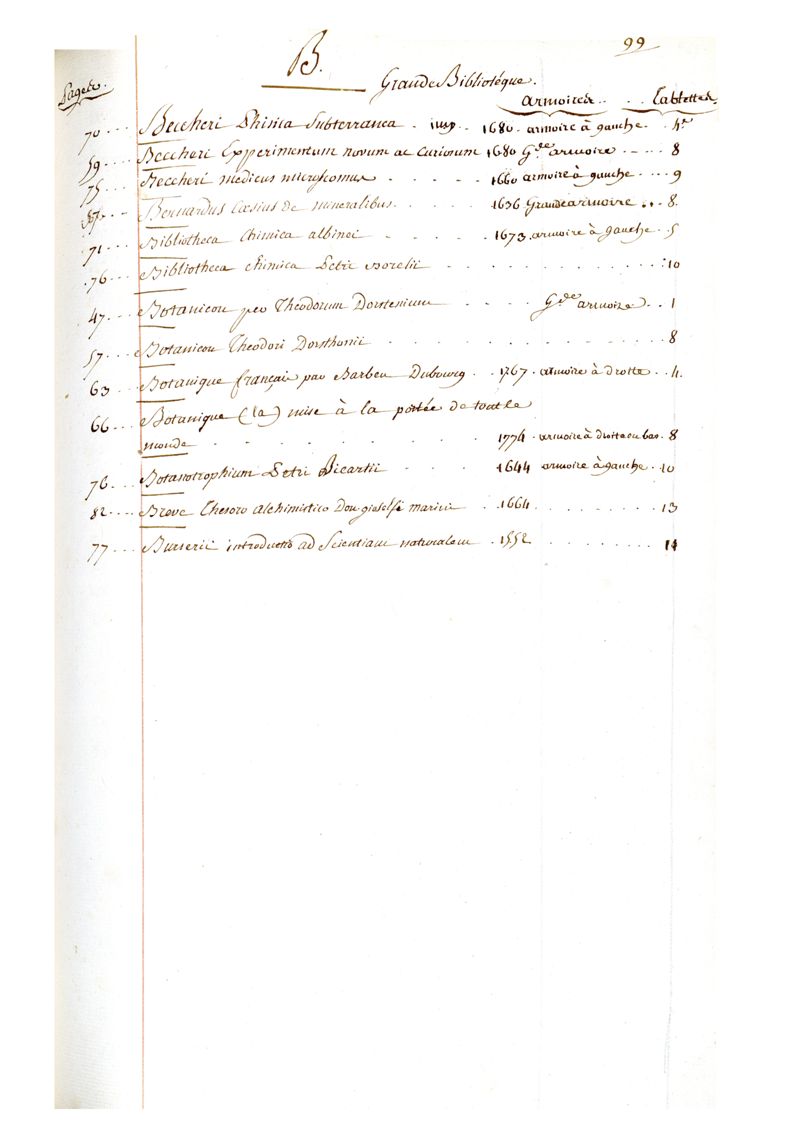 99
B.
Grande Bibliotéque.
Pages.
armoires . . . Tablettes.
70 . . . Beccheri Phisica Subterranea . imp . 1680 . armoire à gauche . 4e
59 . . . Beccheri Experimentum novum ac Curiosum 1680 Gde armoire . - . . 8
75 . . . Beccheri medicus microscomus . . . . 1660 armoire à gauche . . . . 9
Bernardus Cæsius de mineralibus . . . . 1636 Grande armoire . . . 8.
71 . . . Bibliotheca Chimica albinei . . . . 1673 . armoire à gauche . . 5
76 . . . Bibliotheca chimica Petri Borelii . . . . . . . . . 10
47 . . . Botanicon per Theodorum Dorstenium . . . . Gde armoire . . 1
57 . . . Botanicon Theodori Dorsthonii . . . . . . . . . 8
63 . . . Botanique français par Barbeu Dubourg . . 1767 . armoire à drotte . . 4.
66 . . . Botanique (la) mise à la portée de tout le
monde . . . . . . . 1774 . armoire à drotte en bas . 8
76 . . . Botanotrophium Petri Ricartii . . . 1644 armoire à gauche . 10
82 . . . Breve Thesoro alchimistico Don marinii . . 1664 . . . . . . 13
77 . . . Burserii introductio ad Scientiam naturalem . 1552 . . . . . . 14